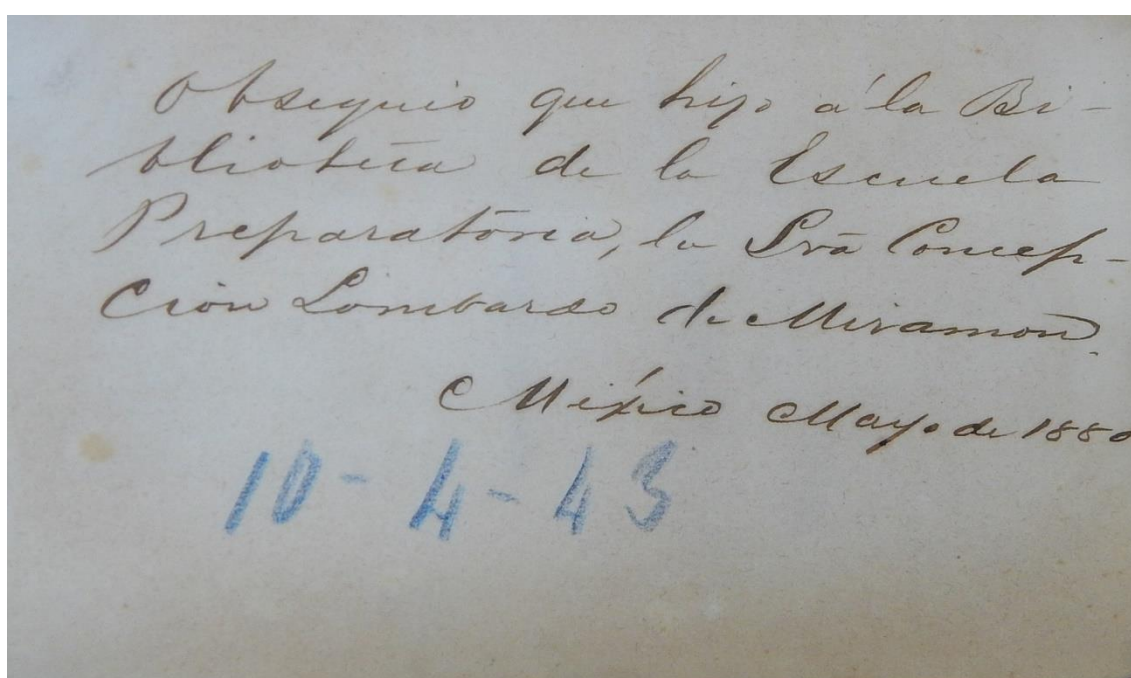 Obsequio que hizo á la Bi-
blioteca de la Escuela
Preparatoria, la Sra Concep-
cion Lombardo de Miramon.
México Mayo de 1880
10-4-43